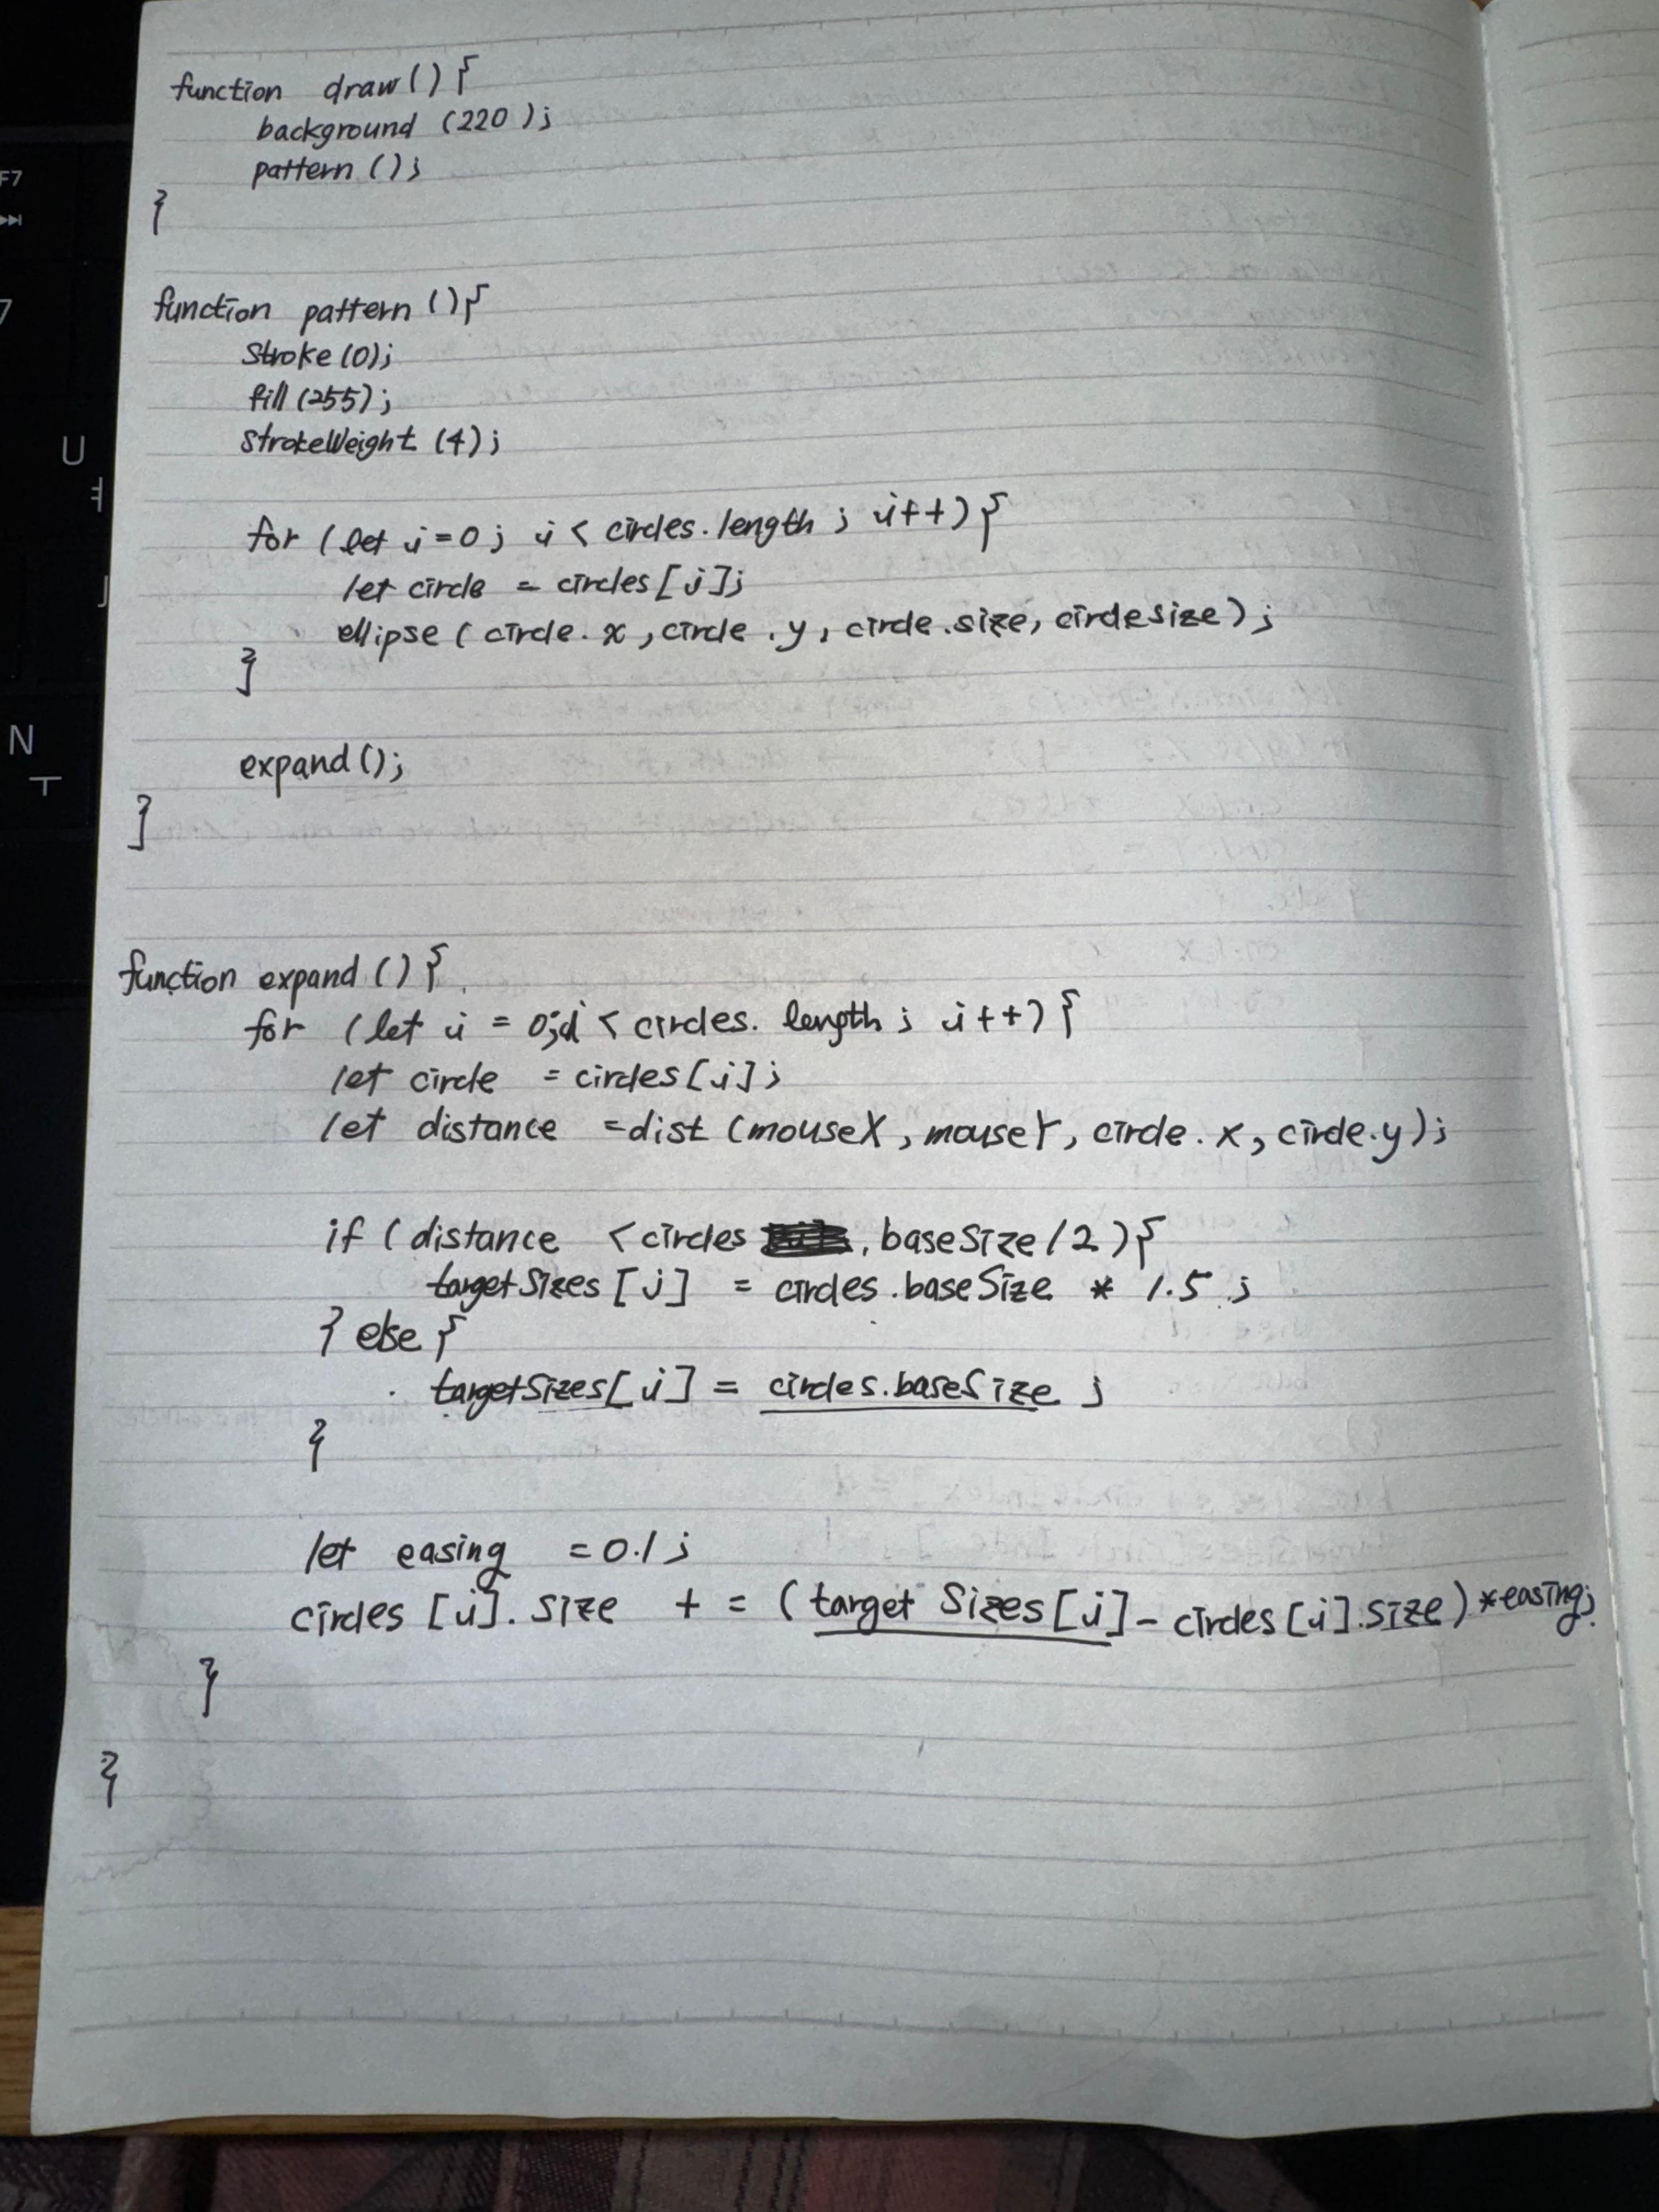 function draw() {
background (220);
pattern ();
}
function pattern () {
Stroke (0);
fill (255);
StrokeWeight (4);
for (let i = 0; i < circles.length; i++) {
let circle = circles [i];
ellipse (circle.x, circle.y, circle.size, circlesize);
}
expand ();
}
function expand () {
for (let i = 0; i < circles. length; i++) {
let circle = circles [i];
let distance = dist (mouseX, mouseY, circle.x, circle.y);
if (distance < circles . baseSize /2) {
targetSizes [i] = circles.baseSize * 1.5;
} else {
targetSizes [i] = circles.baseSize;
}
let easing = 0.1;
circles [i]. size += (target Sizes [i] - circles [i].size) * easing;
}
}
F7
7
U
ㅕ
J
N
ㅜ